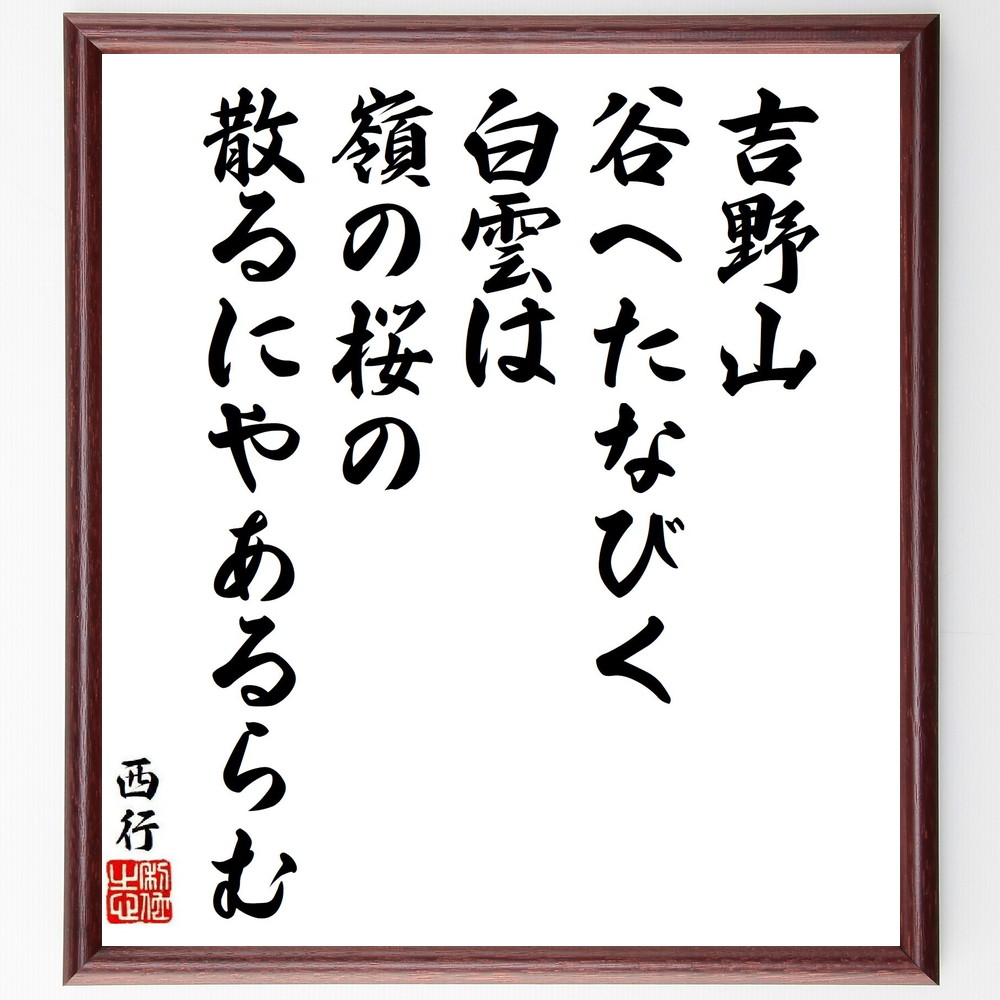 吉野山
谷へたなびく
白雲は
嶺の桜の
散るにやあるらむ
西行